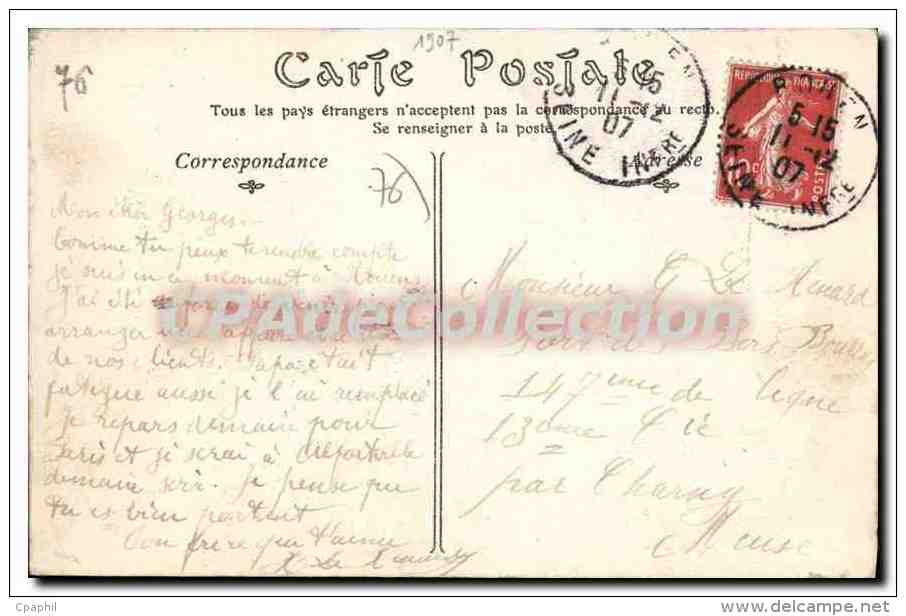 1907
76
Carte Postale
Tous les pays étrangers n'acceptent pas la correspondance au recto.
Se renseigner à la poste.
Correspondance
Adresse
76
ROUEN
5-15
11-12
07
SEINE INFRE
REPUBLIQUE FRANCAISE
10c
POSTES
Mon cher Georges
Comme tu peux te rendre compte
je suis en ce moment à Rouen
J'ai été
arranger une affaire
de nos clients. papa était
fatigué aussi je l'ai remplacé
Je repars demain pour
Paris et je serai à
demain soir. Je pense que
tu es bien portant
Ton frère qui t'aime
Monsieur G Le Menard
Fort de Bois Bourrus
147eme de ligne
13eme Cie
par Charny
Meuse
CPAdeCollection
Cpaphil
www.delcampe.net